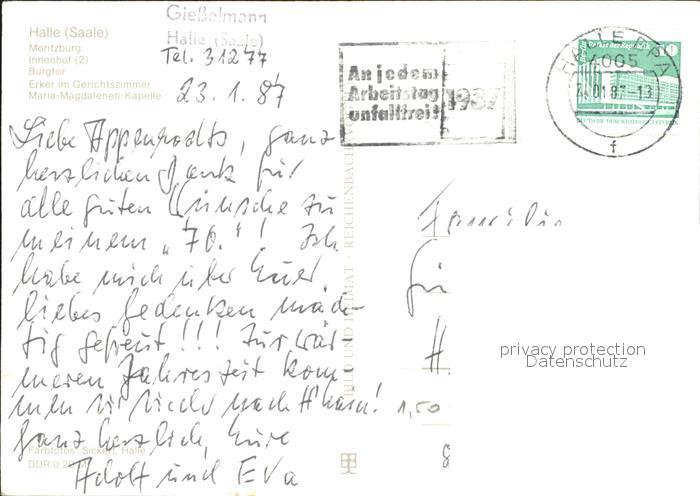 Gießelmann
Halle (Saale)
Tel. 31277
Halle (Saale)
Moritzburg
Innenhof (2)
Burgtor
Erker im Gerichtszimmer
Maria-Magdalenen-Kapelle
23. 1. 87
Liebe Appenrodts, ganz
herzlichen Dank für
alle guten Wünsche zu
meinem „70."! Ich
habe mich über Euer
liebes Gedenken mäch-
tig gefreut!!! Zur wär-
meren Jahreszeit kom
men wir wieder nach
Ganz herzlich, Eure
Adolf und Eva
Farbfotos: Sickert, Halle
DDR 0,20
BILD UND HEIMAT REICHENBACH
An jedem
Arbeitstag
unfallfrei!
1987
HALLE
4005
.01.87-13
f
Palast der Republik
Berlin
DEUTSCHE DEMOKRATISCHE REPUBLIK
Familie
H
1,50
8
privacy protection
Datenschutz